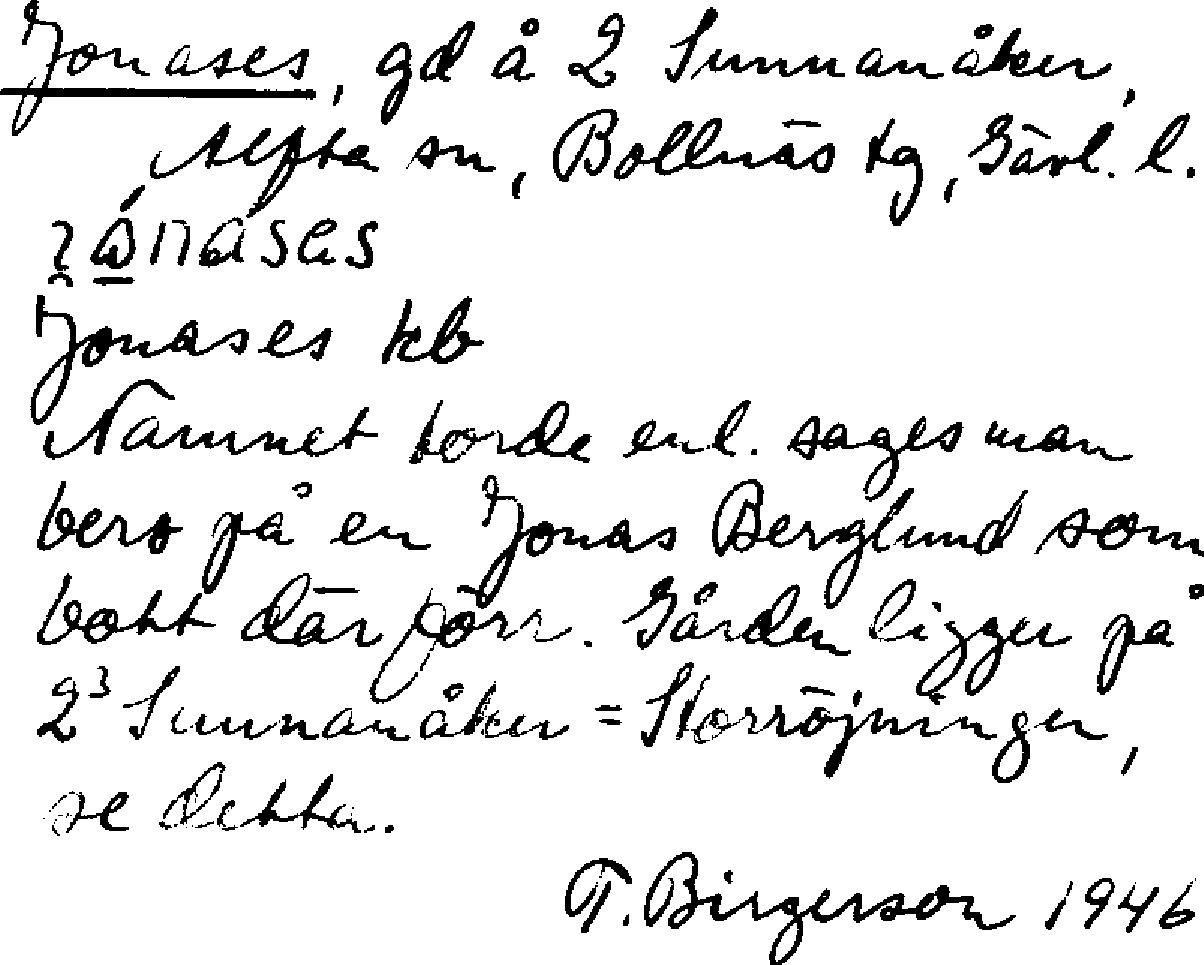 Jonases, gd å 2 Sunnanåker,
Alfta sn, Bollnäs tg, Gävl. l.
Jonases kb
Namnet torde enl. sagesman
bero på en Jonas Berglund som
bott där förr. Gården ligger på
2³ Sunnanåker = Storröjningen,
se detta.
T. Birgerson 1946